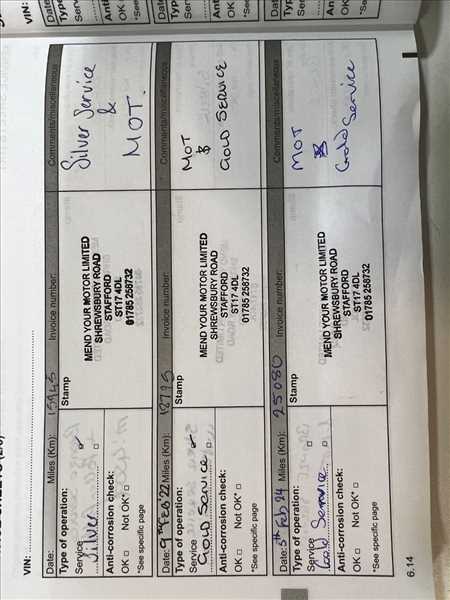 VIN:
Miles (Km): Invoice number: Comments/miscellaneous
Type of operation: Stamp
Service
Silver
Anti-corrosion check:
OK □ Not OK* □
*See specific page
MEND YOUR MOTOR LIMITED
SHREWSBURY ROAD
STAFFORD
ST17 4DL
01785 258732
Silver Service
&
MOT.
Feb '22 Miles (Km): Invoice number: Comments/miscellaneous
Type of operation: Stamp
Service
GOLD Service
Anti-corrosion check:
OK □ Not OK* □
*See specific page
MEND YOUR MOTOR LIMITED
SHREWSBURY ROAD
STAFFORD
ST17 4DL
01785 258732
MOT
&
GOLD SERVICE
Date: 5th Feb 24 Miles (Km): 25080 Invoice number: Comments/miscellaneous
Type of operation: Stamp
Service
Gold Service
Anti-corrosion check:
OK □ Not OK* □
*See specific page
MEND YOUR MOTOR LIMITED
SHREWSBURY ROAD
STAFFORD
ST17 4DL
01785 258732
MOT
&
Gold Service
6.14